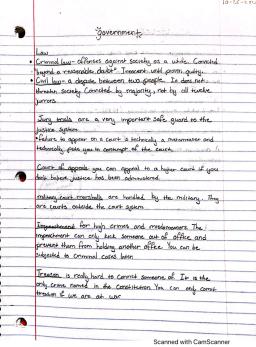 Government
Law
• Criminal law - offenses against society as a whole. Convicted
beyond a reasonable doubt. Innocent until proven guilty.
• Civil law - a dispute between two people. It does not
threaten society. Convicted by majority, not by all twelve
jurors.
Jury trials are a very important safe guard to the
justice system.
• Failure to appear on a court is technically a misdemeanor and
technically puts you in contempt of the court.
Court of appeals you can appeal to a higher court if you
feel before justice has been administered.
Military court marshalls are handled by the military. They
are courts outside the court system.
Impeachment for high crimes and misdemeanors. The
impeachment can only kick someone out of office and
prevent them from holding another office. You can be
subjected to criminal cases later.
Treason is really hard to convict someone of. It is the
only crime named in the Constitution. You can only commit
treason if we are at war
Scanned with CamScanner